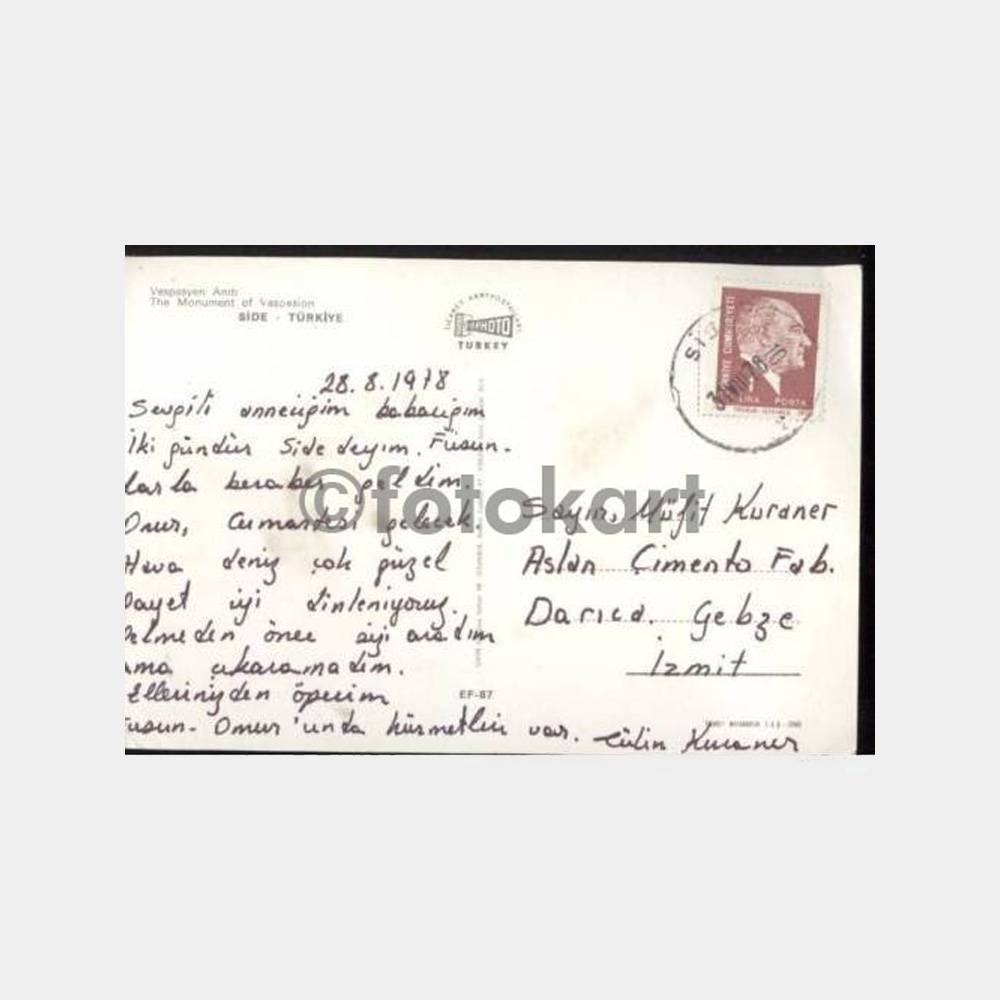 Vespasyen Anıtı
The Monument of Vespasian
SİDE - TÜRKİYE
TURKEY
TÜRKİYE CUMHURİYETİ
LİRA POSTA
28.8.1978
Sevgili anneciğim babacığım
İki gündür Side deyim. Füsun-
larla beraber geldim.
Onur, Cumartesi gelecek
Hava deniz çok güzel
Gayet iyi dinleniyoruz.
Gelmeden önce sizi aradım
ama çıkaramadım.
Ellerinizden öperim
Füsun- Onur'unda hürmetleri var.
Kuraner
©fotokart
Sayın, Müfit Kuraner
Aslan Çimento Fab.
Darıca. Gebze
İzmit
EF-87